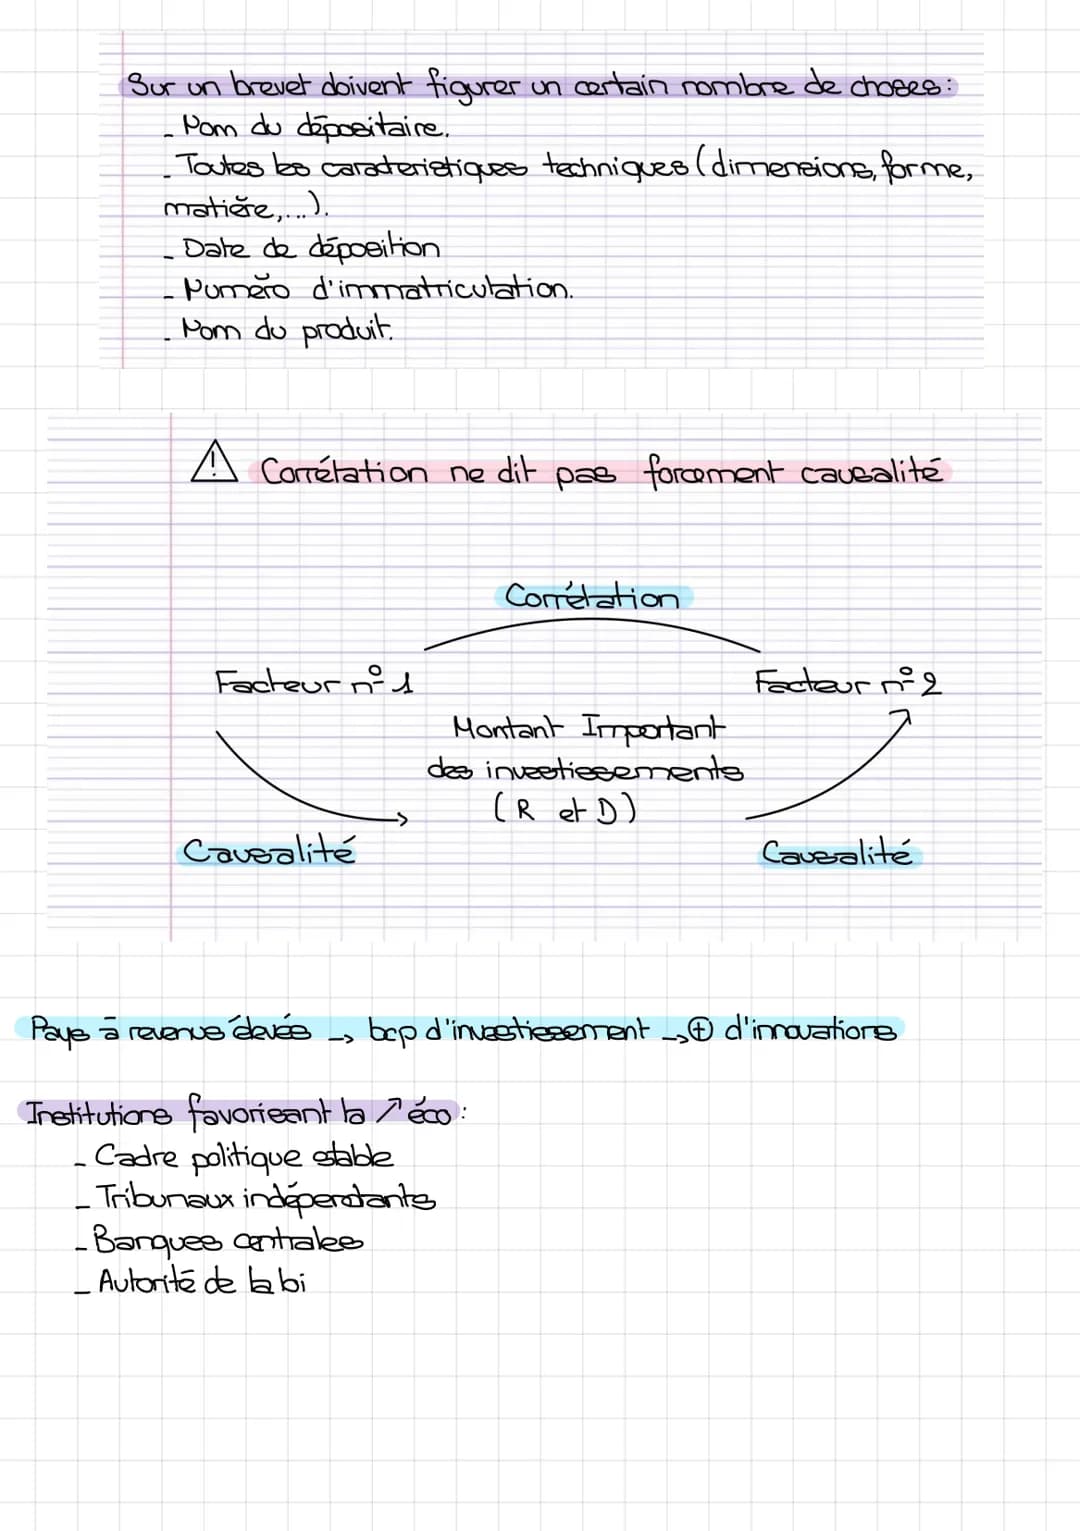 Sur un brevet doivent figurer un certain nombre de choses :
- Nom du dépositaire.
- Toutes les caracteristiques techniques (dimensions, forme,
matière,...).
- Date de déposition
- Numéro d'immatriculation.
- Nom du produit.
⚠ Corrélation ne dit pas forcement causalité
Corrélation
Facteur n° 1
Facteur n° 2
Montant Important
des investissements
(R et D)
Causalité
Causalité
Pays à revenus élevés → bcp d'investissement → ⊕ d'innovations
Institutions favorisant la ↗ éco :
- Cadre politique stable
- Tribunaux indépendants
- Banques centrales
- Autorité de la loi